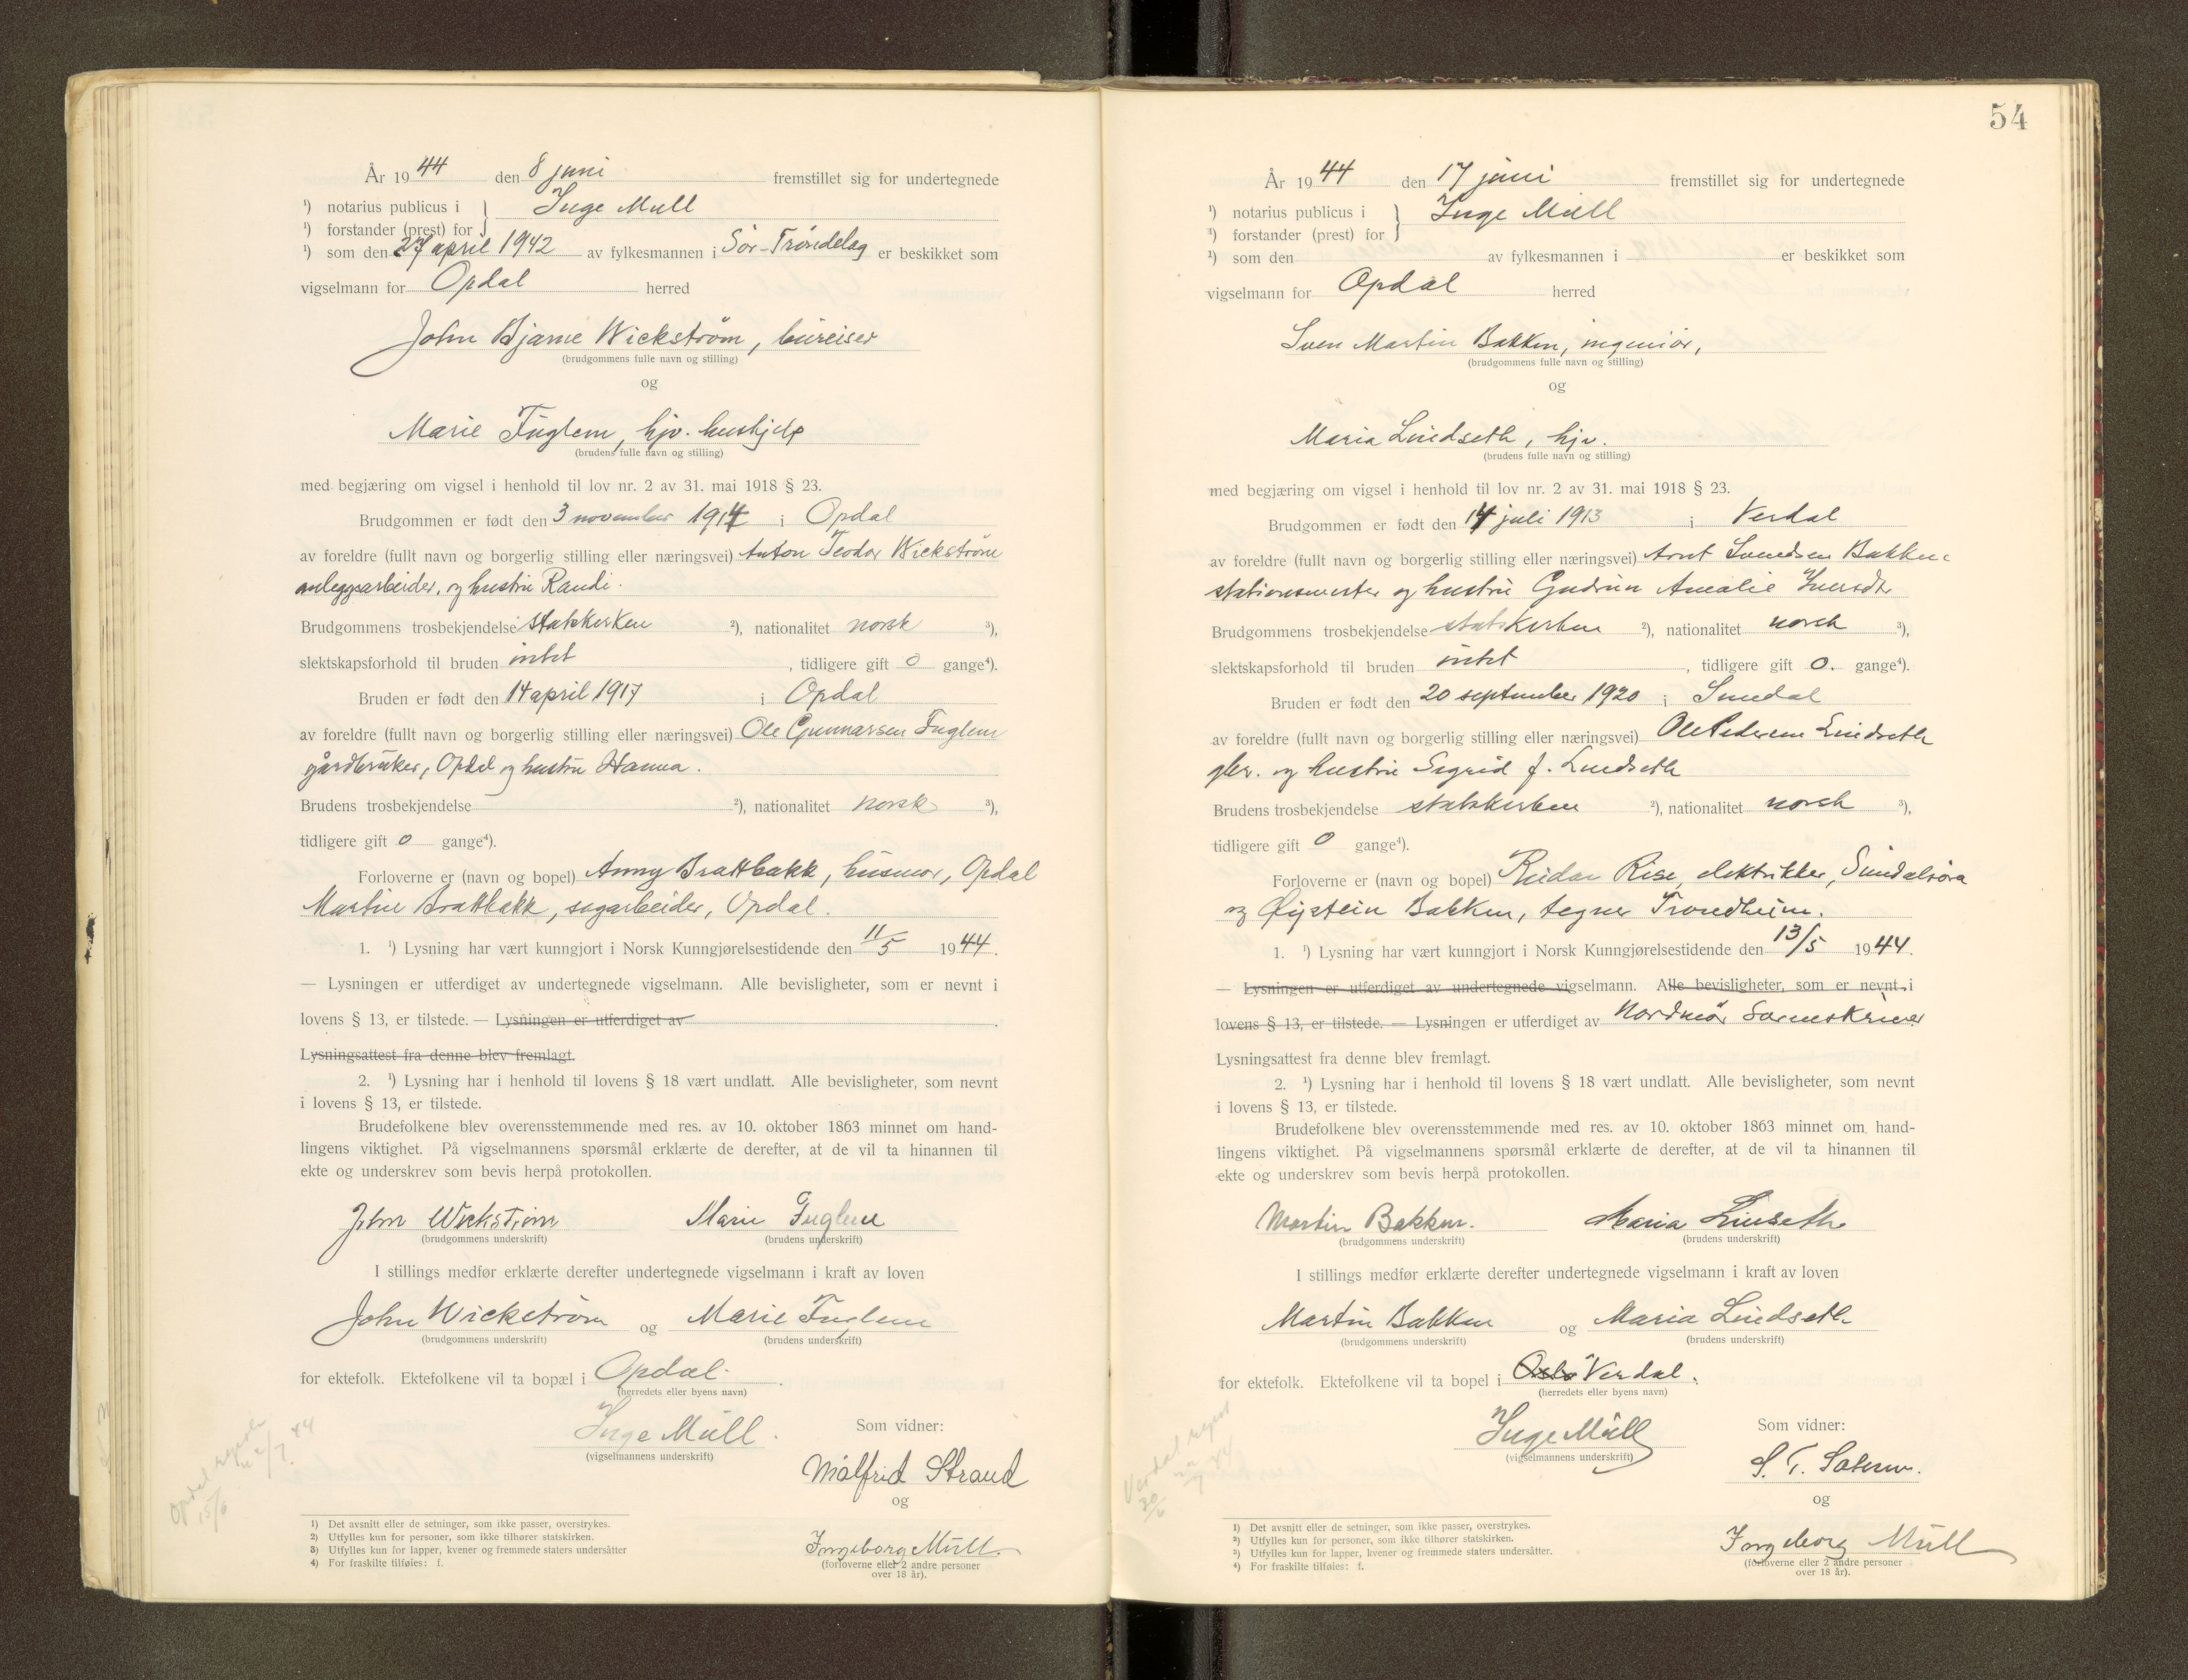 År 1944 den 8 juni fremstillet sig for undertegnede
¹) notarius publicus i } Inge Mull
¹) forstander (prest) for
¹) som den 27 april 1942 av fylkesmannen i Sör-Tröndelag er beskikket som
vigselmann for Opdal herred
John Bjarne Wickström, bureiser
(brudgommens fulle navn og stilling)
og
Marie Fuglem, hjv. hushjelp
(brudens fulle navn og stilling)
med begjæring om vigsel i henhold til lov nr. 2 av 31. mai 1918 § 23.
Brudgommen er født den 3 november 1914 i Opdal
av foreldre (fullt navn og borgerlig stilling eller næringsvei) Anton Teodor Wickström
anleggsarbeider, og hustru Randi.
Brudgommens trosbekjendelse statskirken ²), nationalitet norsk ³),
slektskapsforhold til bruden intet , tidligere gift 0 gange⁴).
Bruden er født den 14 april 1917 i Opdal
av foreldre (fullt navn og borgerlig stilling eller næringsvei) Ole Gunnarsen Fuglem
gårdbruker, Opdal og hustru Hanna.
Brudens trosbekjendelse ²), nationalitet norsk ³),
tidligere gift 0 gange⁴).
Forloverne er (navn og bopel) Anny Brattbakk, husmor, Opdal
Martin Brattbakk, sagarbeider, Opdal.
1. ¹) Lysning har vært kunngjort i Norsk Kunngjørelsestidende den 11/5 1944.
— Lysningen er utferdiget av undertegnede vigselmann. Alle bevisligheter, som er nevnt i
lovens § 13, er tilstede. — Lysningen er utferdiget av .
Lysningsattest fra denne blev fremlagt.
2. ¹) Lysning har i henhold til lovens § 18 vært undlatt. Alle bevisligheter, som nevnt
i lovens § 13, er tilstede.
Brudefolkene blev overensstemmende med res. av 10. oktober 1863 minnet om hand-
lingens viktighet. På vigselmannens spørsmål erklærte de derefter, at de vil ta hinannen til
ekte og underskrev som bevis herpå protokollen.
John Wickström Marie Fuglem
(brudgommens underskrift) (brudens underskrift)
I stillings medfør erklærte derefter undertegnede vigselmann i kraft av loven
John Wickström og Marie Fuglem
(brudgommens underskrift) (brudens underskrift)
for ektefolk. Ektefolkene vil ta bopæl i Opdal.
(herredets eller byens navn)
Inge Mull. Som vidner:
(vigselmannens underskrift)
Målfrid Strand
og
Ingeborg Mull.
(forloverne eller 2 andre personer
over 18 år).
1) Det avsnitt eller de setninger, som ikke passer, overstrykes.
2) Utfylles kun for personer, som ikke tilhører statskirken.
3) Utfylles kun for lapper, kvener og fremmede staters undersåtter
4) For fraskilte tilføies: f.
54
År 1944 den 17 juni fremstillet sig for undertegnede
¹) notarius publicus i } Inge Mull
¹) forstander (prest) for
¹) som den av fylkesmannen i er beskikket som
vigselmann for Opdal herred
Sven Martin Bakken, ingeniör,
(brudgommens fulle navn og stilling)
og
Maria Lindseth, hjv.
(brudens fulle navn og stilling)
med begjæring om vigsel i henhold til lov nr. 2 av 31. mai 1918 § 23.
Brudgommen er født den 14 juli 1913 i Verdal
av foreldre (fullt navn og borgerlig stilling eller næringsvei) Arnt Svendsen Bakken
stationsmester og hustru Gudrun Amalie Iversdtr
Brudgommens trosbekjendelse statskirken ²), nationalitet norsk ³),
slektskapsforhold til bruden intet , tidligere gift 0. gange⁴).
Bruden er født den 20 september 1920 i Sundal
av foreldre (fullt navn og borgerlig stilling eller næringsvei) Ole Pedersen Lindseth
gbr. og hustru Sigrid f. Lindseth
Brudens trosbekjendelse statskirken ²), nationalitet norsk ³),
tidligere gift 0 gange⁴).
Forloverne er (navn og bopel) Reidar Rise, elektriker, Sundalsöra
og Øystein Bakken, tegner Trondheim.
1. ¹) Lysning har vært kunngjort i Norsk Kunngjørelsestidende den 13/5 1944.
— Lysningen er utferdiget av undertegnede vigselmann. Alle bevisligheter, som er nevnt i
lovens § 13, er tilstede. — Lysningen er utferdiget av Nordmör Sorenskriver
Lysningsattest fra denne blev fremlagt.
2. ¹) Lysning har i henhold til lovens § 18 vært undlatt. Alle bevisligheter, som nevnt
i lovens § 13, er tilstede.
Brudefolkene blev overensstemmende med res. av 10. oktober 1863 minnet om hand-
lingens viktighet. På vigselmannens spørsmål erklærte de derefter, at de vil ta hinannen til
ekte og underskrev som bevis herpå protokollen.
Martin Bakken. Maria Linseth
(brudgommens underskrift) (brudens underskrift)
I stillings medfør erklærte derefter undertegnede vigselmann i kraft av loven
Martin Bakken og Maria Lindseth
(brudgommens underskrift) (brudens underskrift)
for ektefolk. Ektefolkene vil ta bopel i Oslo Verdal.
(herredets eller byens navn)
Inge Mull Som vidner:
(vigselmannens underskrift)
S. T.
og
Ingeborg Mull
(forloverne eller 2 andre personer
over 18 år).
1) Det avsnitt eller de setninger, som ikke passer, overstrykes.
2) Utfylles kun for personer, som ikke tilhører statskirken.
3) Utfylles kun for lapper, kvener og fremmede staters undersåtter.
4) For fraskilte tilføies: f.